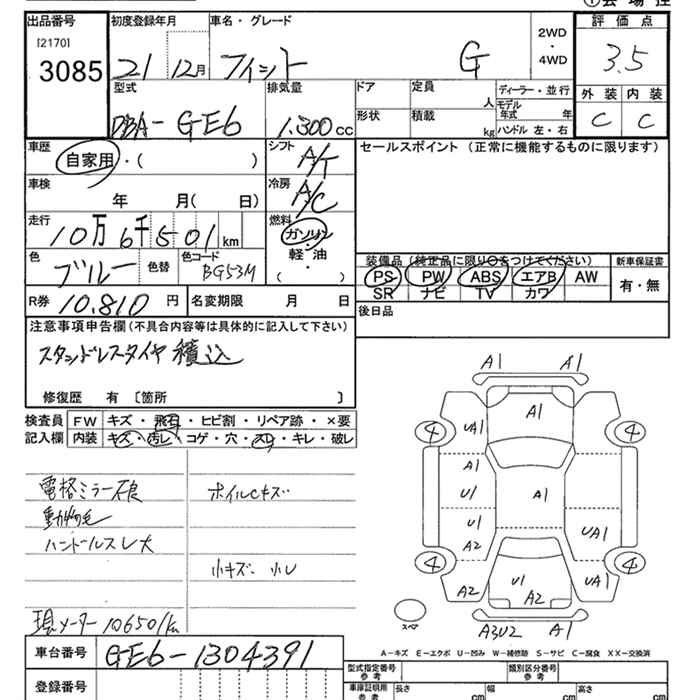 ①会 場 控
出品番号 初度登録年月 車名・グレード 2WD・4WD 評 価 点
[2170]
3085 21 12月 フィット G 3.5
型式 排気量 ドア 定員 人 ディーラー・並行 外 装 内 装
DBA-GE6 1.300cc 形状 積載 kg モデル年式 年 ハンドル 左・右 C C
車歴 自家用・( ) シフト A/T セールスポイント (正常に機能するものに限ります)
車検 年 月( 日) 冷房 A/C
走行 10万6千501km 燃料 ガソリン・軽・油 ( )
色 ブルー 色替 色コード BG53M
装備品(純正品に限り○をつけてください) 新車保証書
PS PW ABS エアB AW 有・無
SR ナビ TV カワ
R券 10.810円 名変期限 月 日
後日品
注意事項申告欄(不具合内容等は具体的に記入して下さい)
スタッドレスタイヤ積込
修復歴 有 〔箇所 〕
検査員 FW キズ・飛石・ヒビ割・リペア跡・×要
記入欄 内装 キズ・汚レ・コゲ・穴・スレ・キレ・破レ
電格ミラー破 ホイルCキズ
動物の毛
ハンドルスレ大
小キズ・小U
現メーター106501km
A1 A1
A1
4 UA1 4
A1
U1 A1
U1 UA1
A2
4 UA1 4
A2 U1 A2
スペア A3U2 A1
A-キズ E-エクボ U-凹み W-補修跡 S-サビ C-腐食 XX-交換済
車台番号 GE6-1304391
登録番号
型式指定番号 参考 類別区分番号 参考
車庫証明用 参考 長さ cm 幅 cm 高さ cm